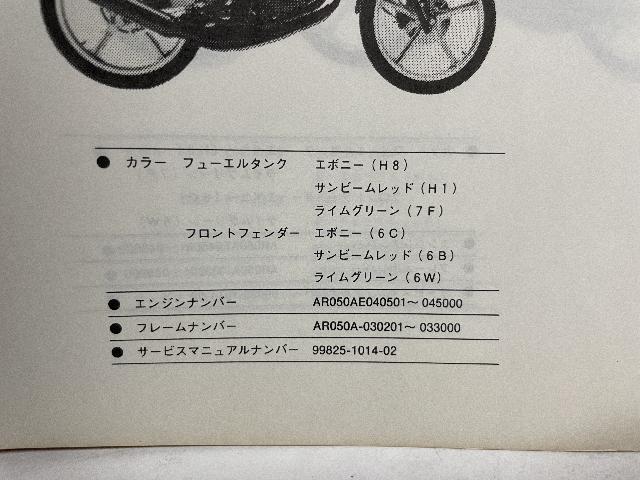 ● カラー フューエルタンク エボニー(H8)
サンビームレッド(H1)
ライムグリーン(7F)
フロントフェンダー エボニー(6C)
サンビームレッド(6B)
ライムグリーン(6W)
● エンジンナンバー AR050AE040501～045000
● フレームナンバー AR050A-030201～033000
● サービスマニュアルナンバー 99825-1014-02